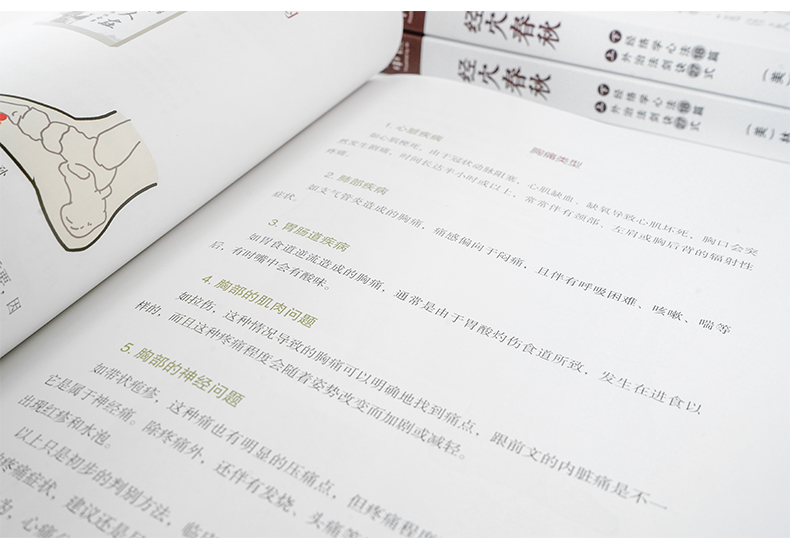 经穴春秋
经络学心法篇
外治法剑诀式
经穴春秋
经络学心法篇
外治法剑诀式
（美）林
孙
重，因
胸痛类型
1. 心脏疾病
如心肌梗死，由于冠状动脉阻塞，心肌缺血、缺氧导致心肌坏死，胸口会突
然发生剧痛，时间长达半小时或以上，常常伴有颈部、左肩或胸后背的辐射性
疼痛。
2. 肺部疾病
如支气管炎造成的胸痛，痛感偏向于闷痛，且伴有呼吸困难、咳嗽、喘等
症状。
3. 胃肠道疾病
如胃食道逆流造成的胸痛，通常是由于胃酸灼伤食道所致，发生在进食以
后，有时嘴中会有酸味。
4. 胸部的肌肉问题
如拉伤，这种情况导致的胸痛可以明确地找到痛点，跟前文的内脏痛是不一
样的，而且这种疼痛程度会随着姿势改变而加剧或减轻。
5. 胸部的神经问题
如带状疱疹，这种痛也有明显的压痛点，但疼痛程度
它是属于神经痛。除疼痛外，还伴有发烧、头痛等
出现红疹和水泡。
以上只是初步的判别方法，临
疼痛症状，建议还是
为，心痛